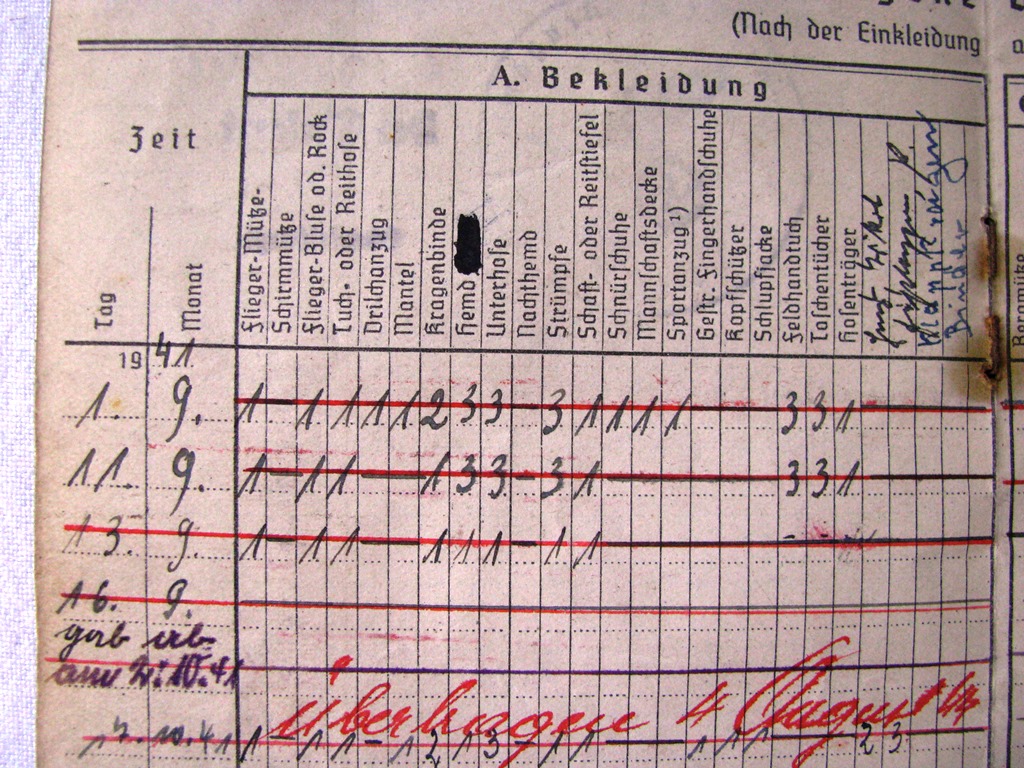 (Nach der Einkleidung
A. Bekleidung
Zeit
Tag
Monat
Flieger-Mütze-
Schirmmütze
Flieger-Bluse od. Rock
Tuch- oder Reithose
Drilchanzug
Mantel
Kragenbinde
Hemd
Unterhose
Nachthemd
Strümpfe
Schaft- oder Reitstiefel
Schnürschuhe
Mannschaftsdecke
Sportanzug ¹)
Gestr. Fingerhandschuhe
Kopfschützer
Schlupfjacke
Feldhandtuch
Taschentücher
Hosenträger
Binder
Bergmütze
1941
1. 9. 1 – 1 1 1 1 2 3 3 3 1 1 1 1 3 3 1
11. 9. 1 – 1 1 – 1 3 3 – 3 1 – 3 3 1
13. 9. 1 – 1 1 – 1 1 1 – 1 1
16. 9.
gab ab
am 2. 10. 41
Übertragen 4 August 44
10. 41 1 – 1 1 – 1 2 1 3 – 1 1 – 1 1 1 2 3